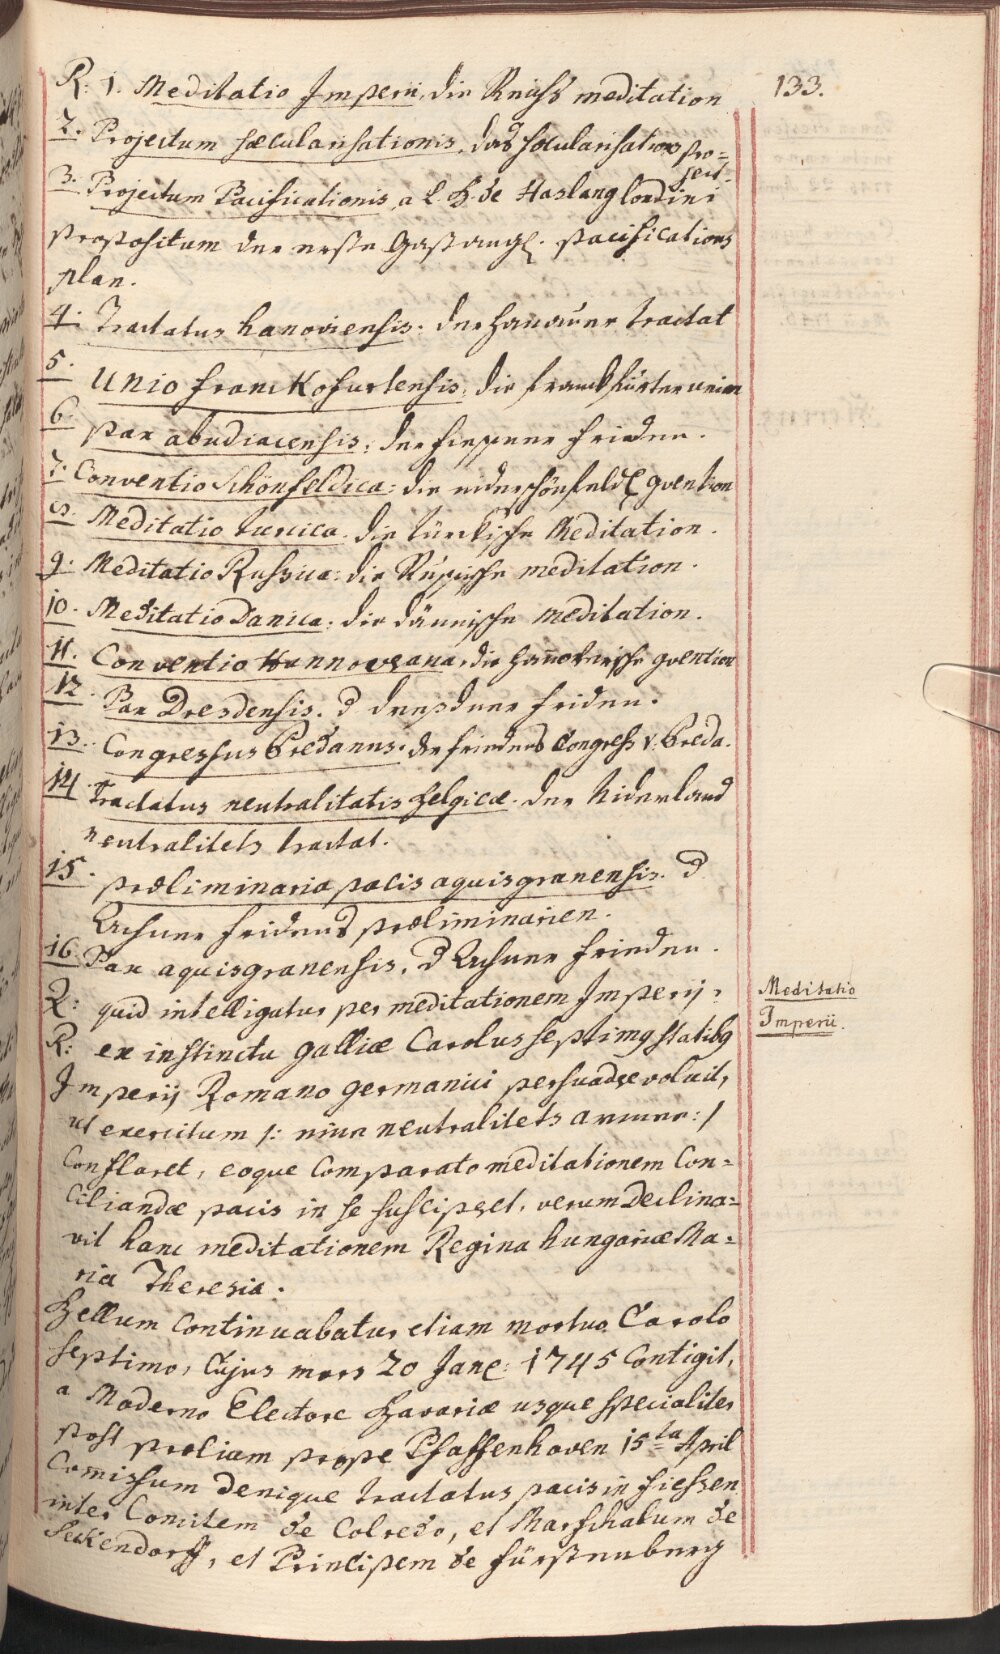 133.
R: 1. Meditatio Imperii, die Reichs meditation
2. Projectum sæcularisationis, das sæcularisations pro=
ject.
3. Projectum Pacificationis a L. B. de Haslang Londini
propositum der erste Hasslangl. pacifications
plan.
4. Tractatus hanoviensis. der hanauer tractat
5. Unio franckofurtensis, die franckfurter union
6. pax abudiacensis, der fiessner frieden.
7. Conventio Schönfeldica: die niderschönfeld. gvention
8. Meditatio turcica. die türckische Meditation.
9. Meditatio Russica: die Russische meditation.
10. Meditatio Danica: die dännische meditation.
11. Conventio Hannoverana, die hannoverische gvention
12. Pax Dresdensis. d dressdner friden.
13. Congressus Bredanus. der friedens Congress v. Breda.
14. Tractatus neutralitatis belgicæ. der Niderland
neutralitets tractat.
15. præliminaria pacis aquisgranensis. d
Achner fridens præliminarien.
16. Pax aquisgranensis, d Achner frieden.
Q: quid intelligatur per meditationem Imperij?
Meditatio
Imperii.
R: ex instinctu galliæ Carolus septimg statibg
Imperij Romano germanici persuadere voluit,
ut exercitum /: eine neutralitets armee :/
conflaret, eoque comparato meditationem Con=
ciliandæ pacis in se susciperet, verum declina=
vit hanc meditationem Regina hungariæ Ma=
ria Theresia.
Bellum continuabatur etiam mortuo Carolo
septimo, Cujus mors 20 Jan: 1745 Contigit,
a Moderno Electore bavariæ usque specialiter
post prœlium prope Pfaffenhoven 15ta April
Comissum denique tractatus pacis in fiessen
inter Comitem de Colredo, et Marschalum de
Seckendorff, et Principem de fürstenberg